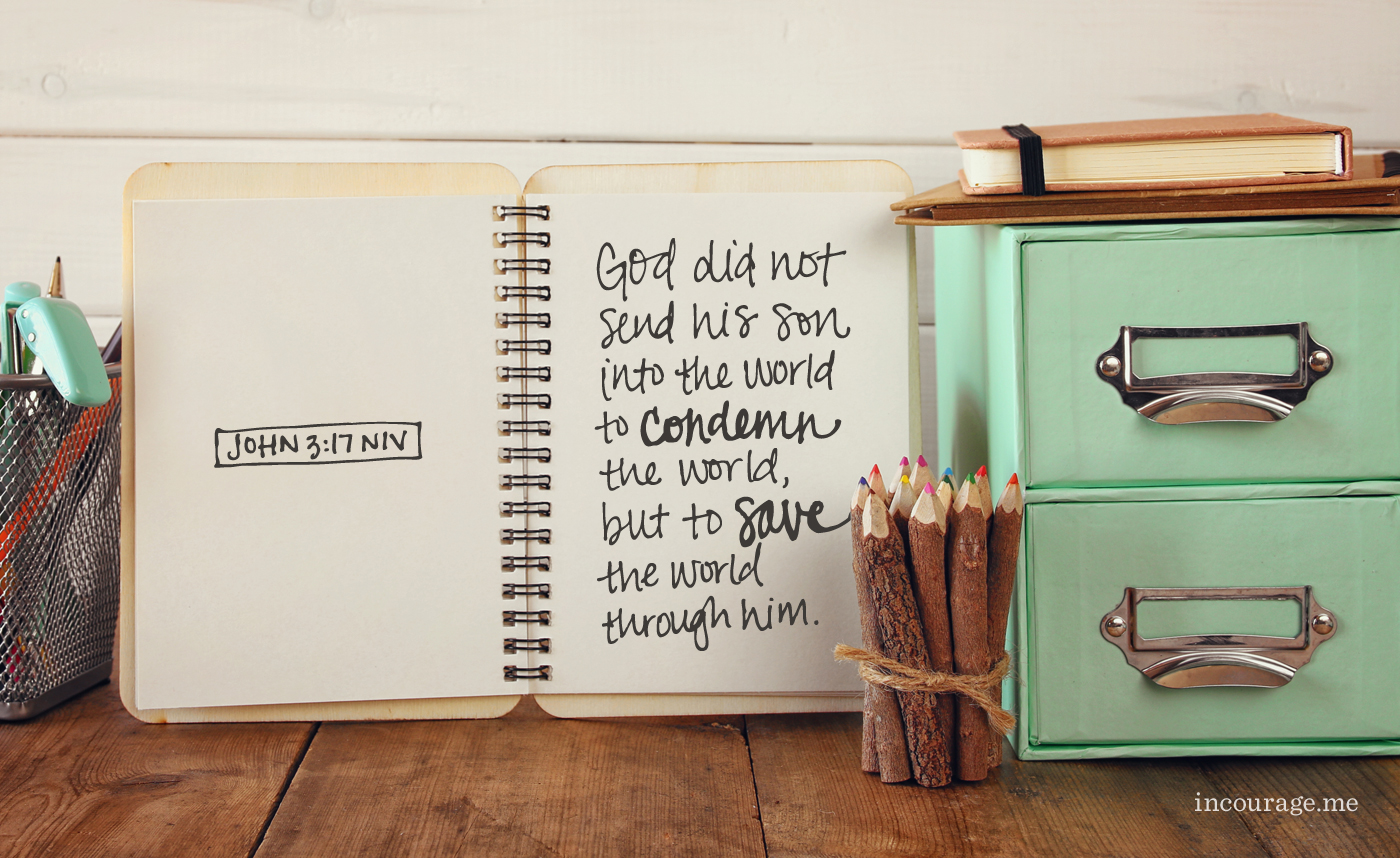 JOHN 3:17 NIV
God did not
send his son
into the world
to condemn
the world,
but to save
the world
through him.
incourage.me